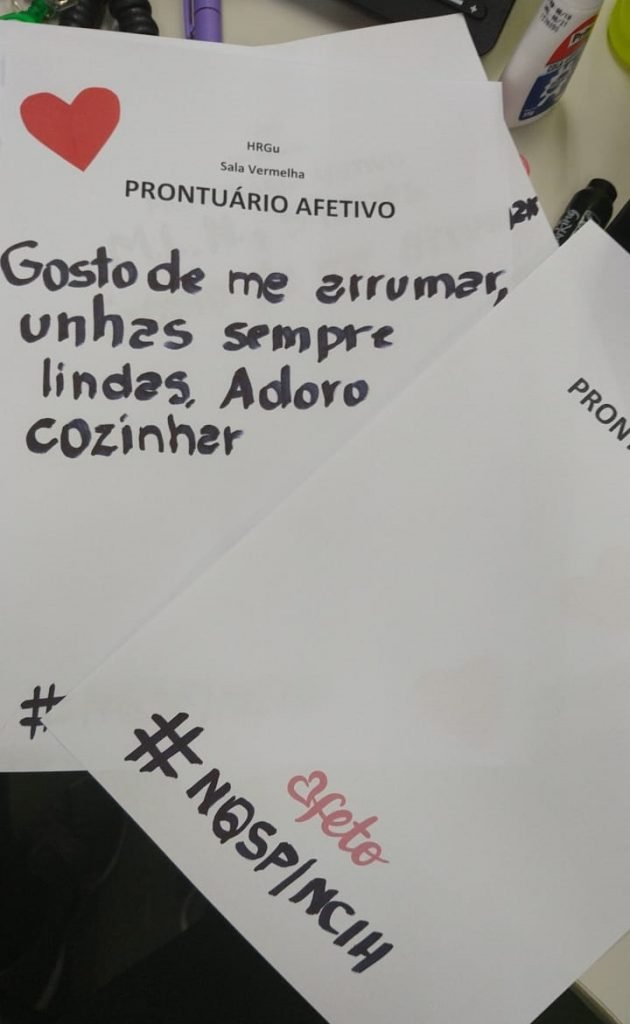 HRGu
Sala Vermelha
PRONTUÁRIO AFETIVO
Gosto de me arrumar,
unhas sempre
lindas. Adoro
cozinhar
#
PRON
afeto
#NQSP/NCIH